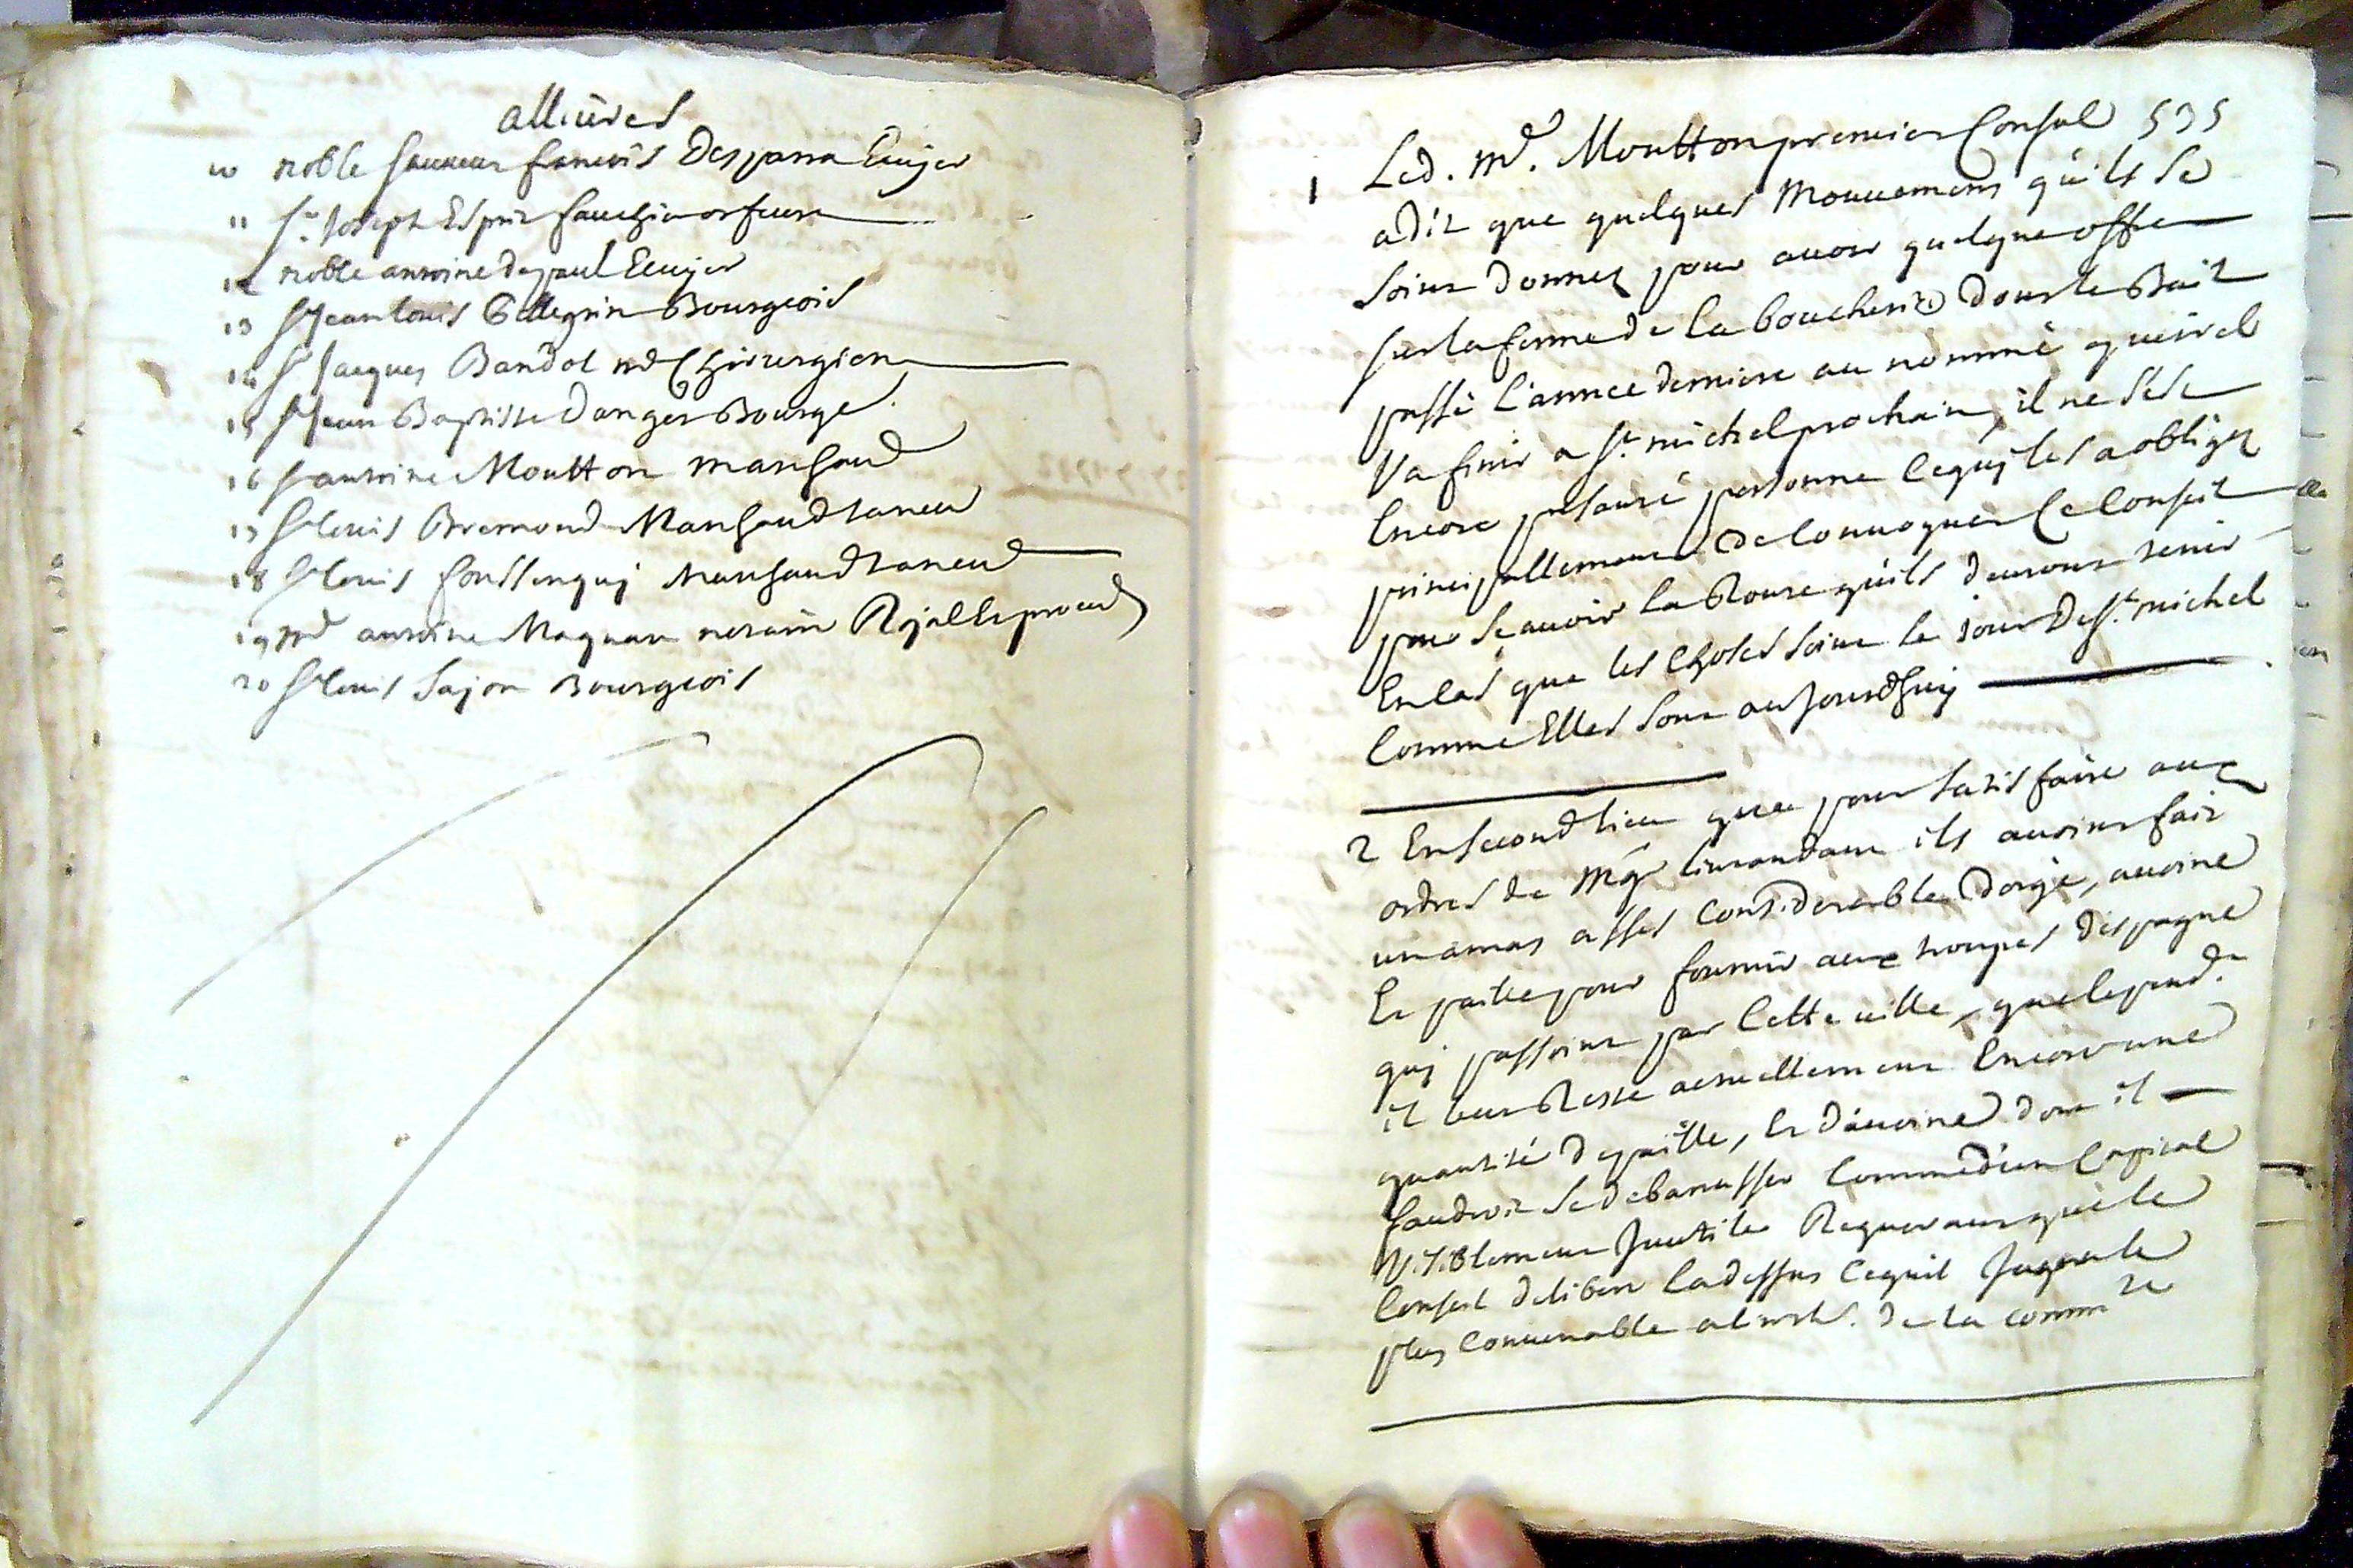 allieres
10 noble sauveur francois Desparra Ecuyer
11 Sr. Joseph Esprit fauchier orfeure
12 noble antoine de paul Ecuyer
13 Sr Jean louis Pellegrin Bourgeois
14 Sr Jacques Bandol md Chirurgien
15 Sr Jean Baptiste danger Bourge.
16 Sr antoine Moutton marchand
17 Sr louis Bremond Marchand taneur
18 Sr louis foussenquy Marchand taneur
19 Me antoine Maquan notaire Royal Et procur
20 Sr louis Sajon Bourgeois
535
1 Led. Me. Moutton premier Consul
a dit que quelques Mouuemens qu'ils se
soint donnez pour auoir quelque offre
sur la ferme de la boucherie dont le Bail
passé l'année derniere au nommé queirel
Va finir a St. michel prochain, il ne s'est
Encore presanté personne ce quj les a obligez
principallement de Conuoquer Ce Conseil
pour sçauoir la Route qu'ils deuront tenir
En cas que les Choses soint le jour de St. michel
Comme Elles sont aujourdhuy
2 En second lieu que pour satisfaire aux
ordres de Mgr lintandant ils auoint fait
un amas asses Considerable dorge, auoine
Et paille pour fournir aux troupes despagne
quj passoint par Cette uille, que cepend.t
il leur Reste actuellement Encore une
quantité de paille, Et d'auoine dont il
faudroit se debarasser Comme d'un Capital
Visiblement Inutile Requerant que le
Conseil delibere la dessus Ce quil Jugera le
plus Conuenable a l'intt. de la commté